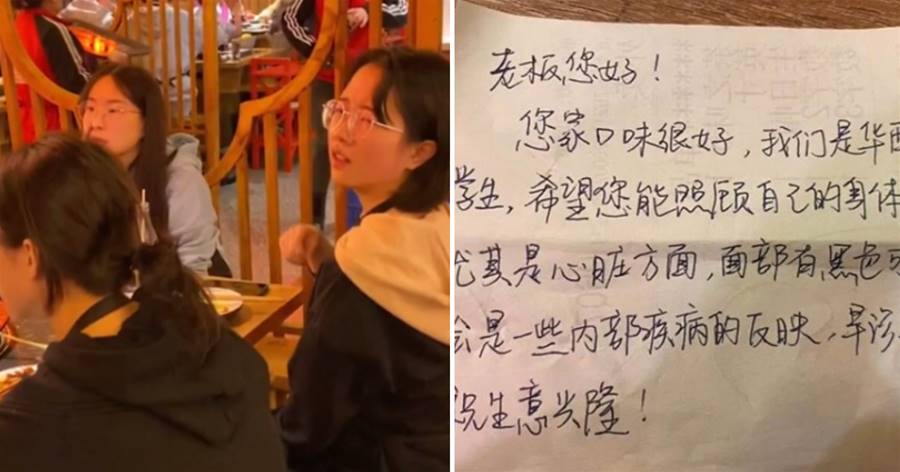 老板您好!
您家口味很好,我们是华西
学生,希望您能照顾自己的身体
尤其是心脏方面,面部有黑色
会是一些内部疾病的反映,早诊
祝生意兴隆!